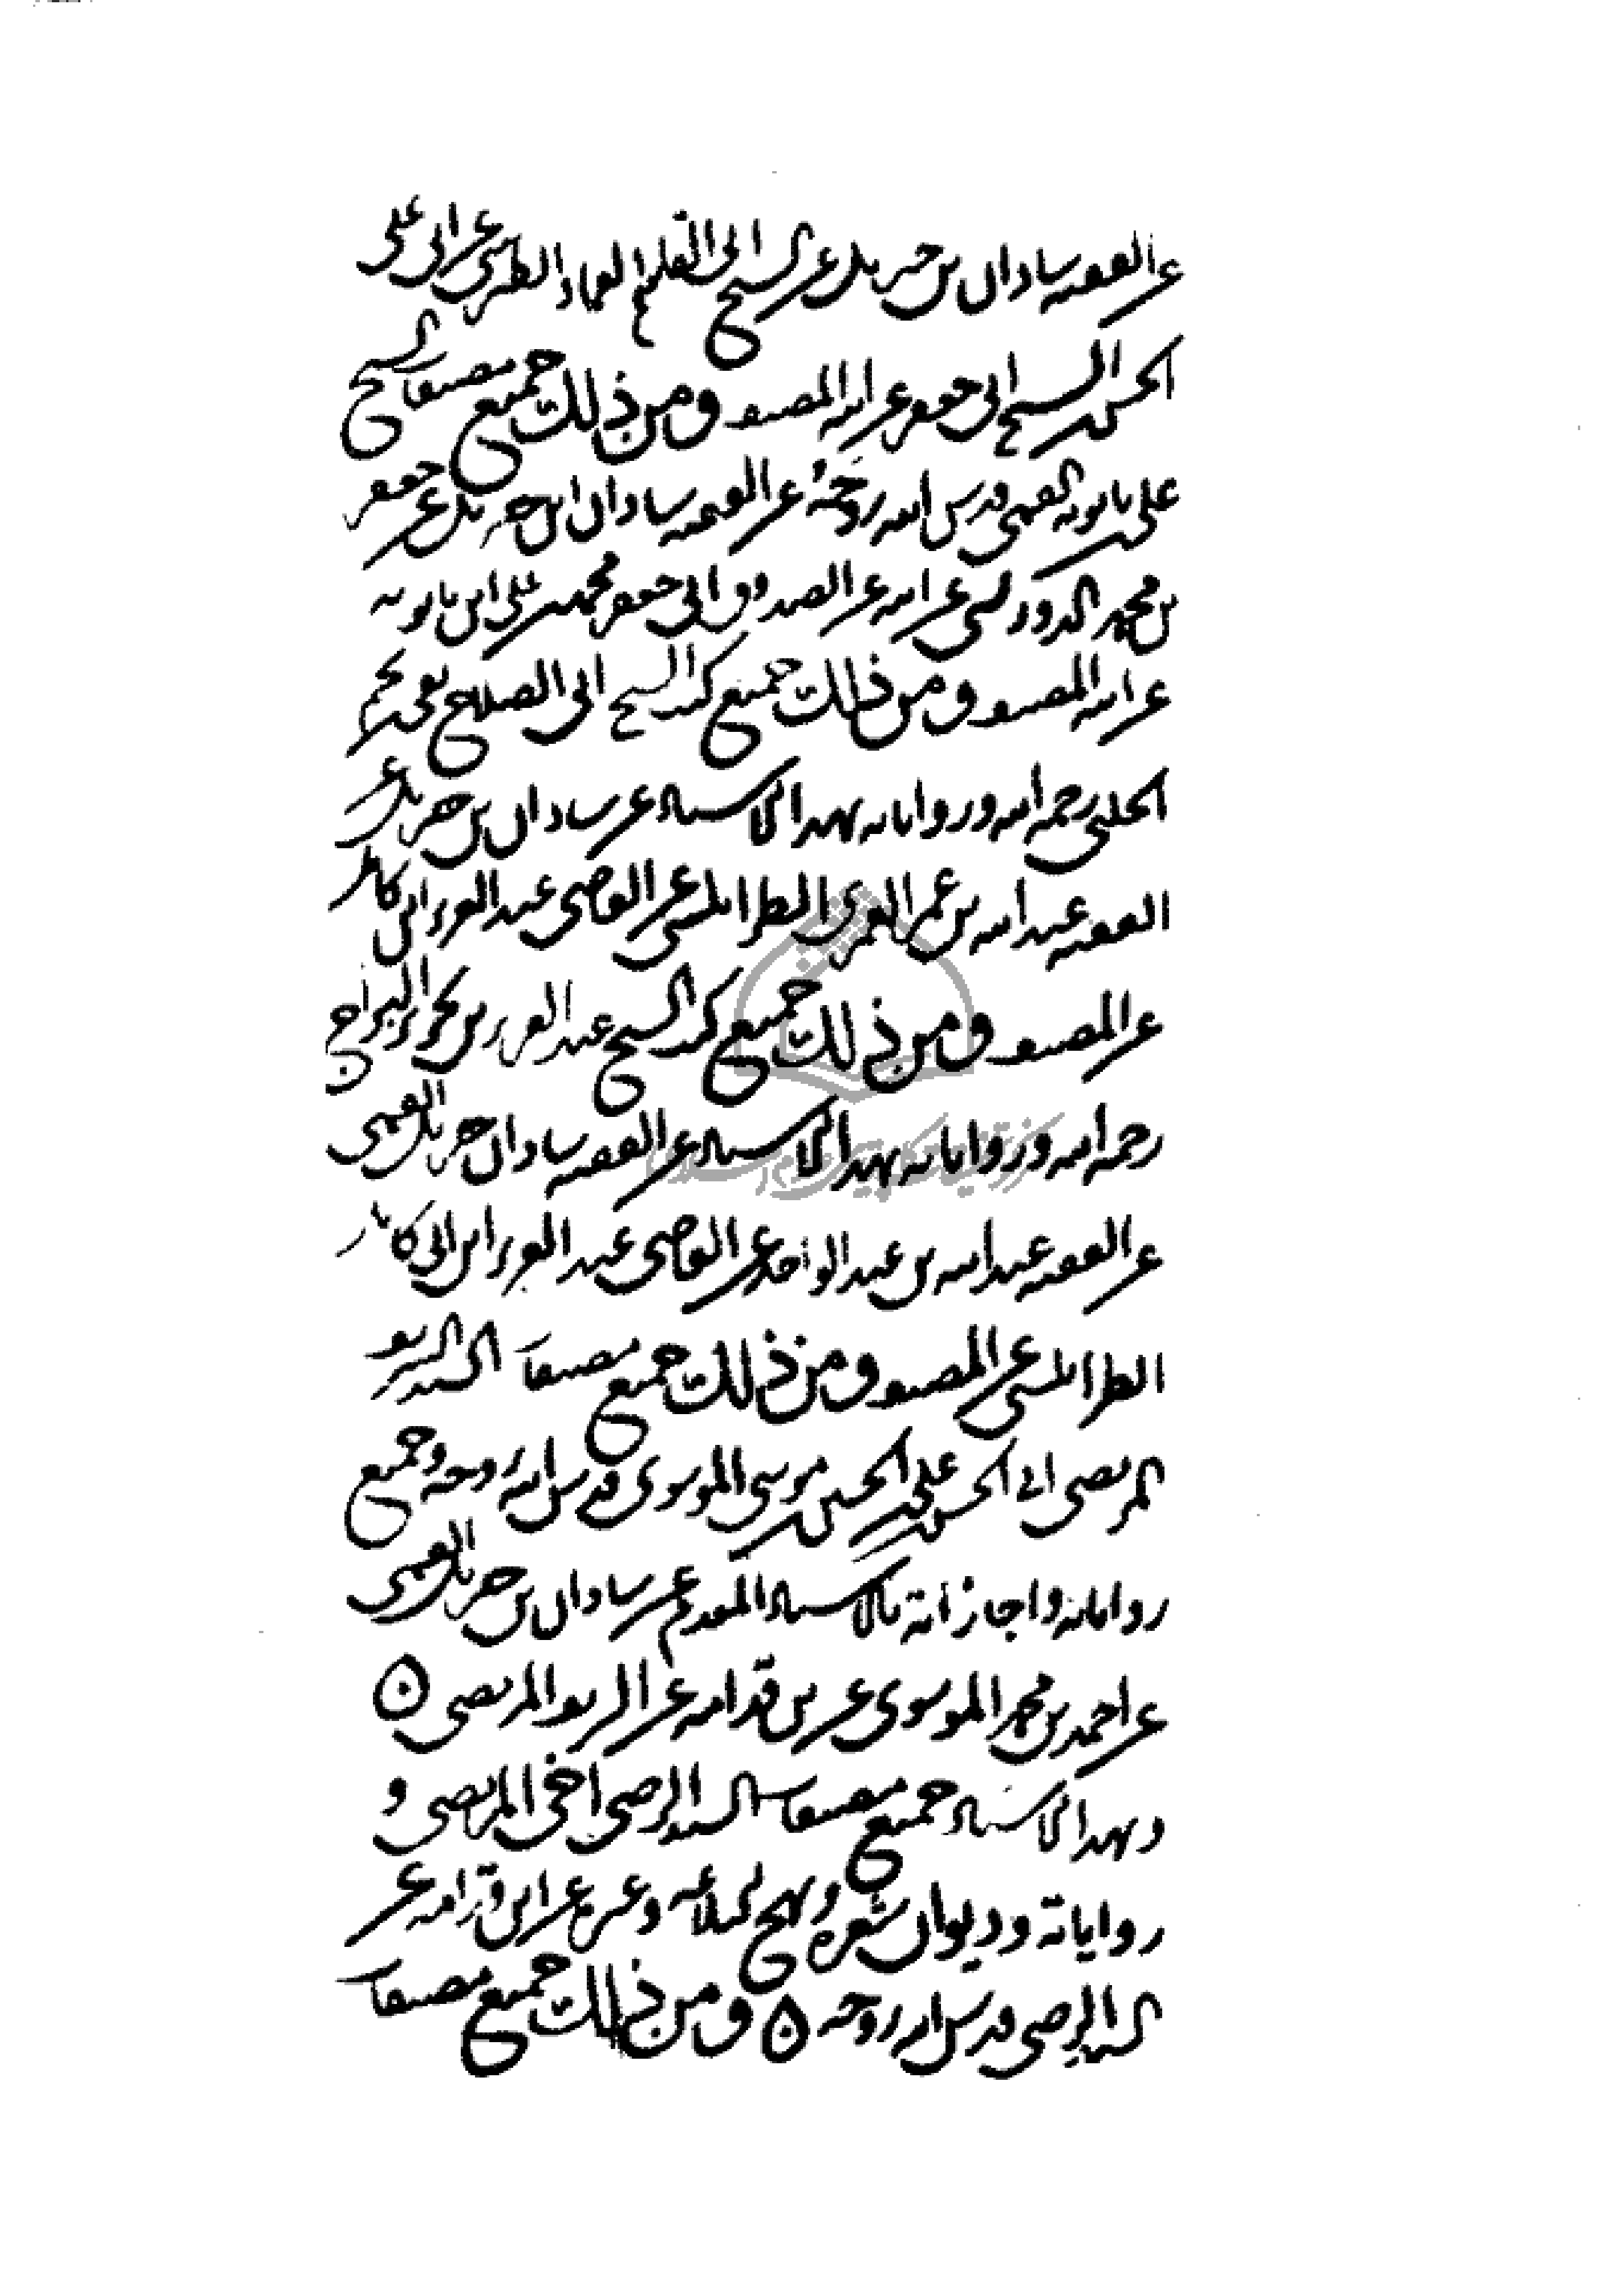 عن الفقيه شاذان بن جبريل عن الشيخ ابي القسم العماد الطبرسي عن ابي علي
الحسن بن الشيخ ابي جعفر عن ابيه المصنف ومن ذلك جميع مصنفات الشيخ
علي بن بابويه القمي قدس الله روحه عن الفقيه شاذان ابن جبريل عن جعفر
بن محمد الدوريستي عن ابيه عن الصدوق ابي جعفر محمد بن علي ابن بابويه
عن ابيه المصنف ومن ذلك جميع كتب الشيخ ابي الصلاح تقي بن نجم
الحلبي رحمه الله ورواياته بهذا الاسناد عن شاذان بن جبريل عن
الفقيه عبد الله بن عمر العمري الطرابلسي عن القاضي عبد العزيز ابن كامل
عن المصنف ومن ذلك جميع كتب الشيخ عبد العزيز بن نحرير البراج
رحمه الله ورواياته بهذا الاسناد عن الفقيه شاذان جبريل القمي
عن الفقيه عبد الله بن عبد الواحد عن القاضي عبد العزيز ابن ابي كامل
الطرابلسي عن المصنف ومن ذلك جميع مصنفات السيد الشريف
المرتضى ابي الحسن علي بن الحسين بن موسى الموسوي قدس الله روحه وجميع
رواياته واجازاته بالاسناد المقدم عن شاذان بن جبريل القمي
عن احمد بن محمد الموسوي عن بن قدامه عن الشريف المرتضى ه
وبهذا الاسناد جميع مصنفات السيد الرضي اخي المرتضى و
رواياته وديوان شعره ونهج البلاغه وغيره عن ابن قدامه عن
السيد الرضي قدس الله روحه ه ومن ذلك جميع مصنفات